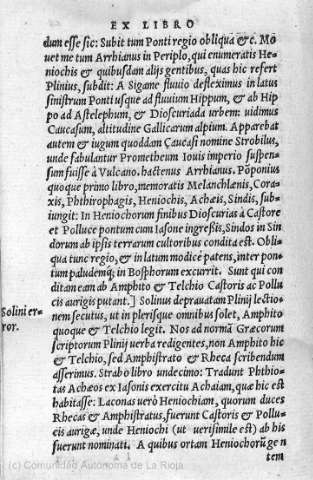 EX LIBRO
dum esse sic: Subit tum Ponti regio obliqua &c. Mo
uet me tum Arrhianus in Periplo, qui enumeratis He-
niochis & quibusdam alijs gentibus, quas hic refert
Plinius, subdit: A Sigame fluuio deflexinus in latus
sinistrum Ponti usque ad fluuium Hippum, & ab Hip
po ad Astelephum, & Dioscuriada urbem: uidimus
Caucasum, altitudine Gallicarum alpium. Apparebat
autem & iugum quoddam Caucasi nomine Strobilus,
unde fabulantur Prometheum Iouis imperio suspen-
sum fuisse à Vulcano. hactenus Arrhianus. Põponius
quoque primo libro, memoratis Melanchlænis, Cora-
xis, Phthirophagis, Heniochis, Achæis, Sindis, sub-
iungit: In Heniochorum finibus Dioscurias à Castore
et Polluce pontum cum Iasone ingreßis, Sindos in Sin
dorum ab ipsis terrarum cultoribus condita est. Obli-
qua tunc regio, & in latum modicè patens, inter pon-
tum paludemq; in Bosphorum excurrit. Sunt qui con
ditam eam ab Amphito & Telchio Castoris ac Pollu
cis aurigis putant.] Solinus deprauatam Plinij lectio-
nem secutus, ut in plerisque omnibus solet, Amphito
quoque & Telchio legit. Nos ad normã Græcorum
scriptorum Plinij uerba redigentes, non Amphito hic
& Telchio, sed Amphistrato & Rheca scribendum
asserimus. Strabo libro undecimo: Tradunt Phthio-
tas Achæos ex Iasonis exercitu Achaiam, quæ hic est
habitasse: Laconas uerò Heniochiam, quorum duces
Rhecas & Amphistratus, fuerunt Castoris & Pollu-
cis aurigæ, unde Heniochi (ut uerisimile est) ab his
fuerunt nominati. A quibus ortam Heniochorũ gen
tem
Solini er-
ror.
(c) Comunidad Autónoma de La Rioja